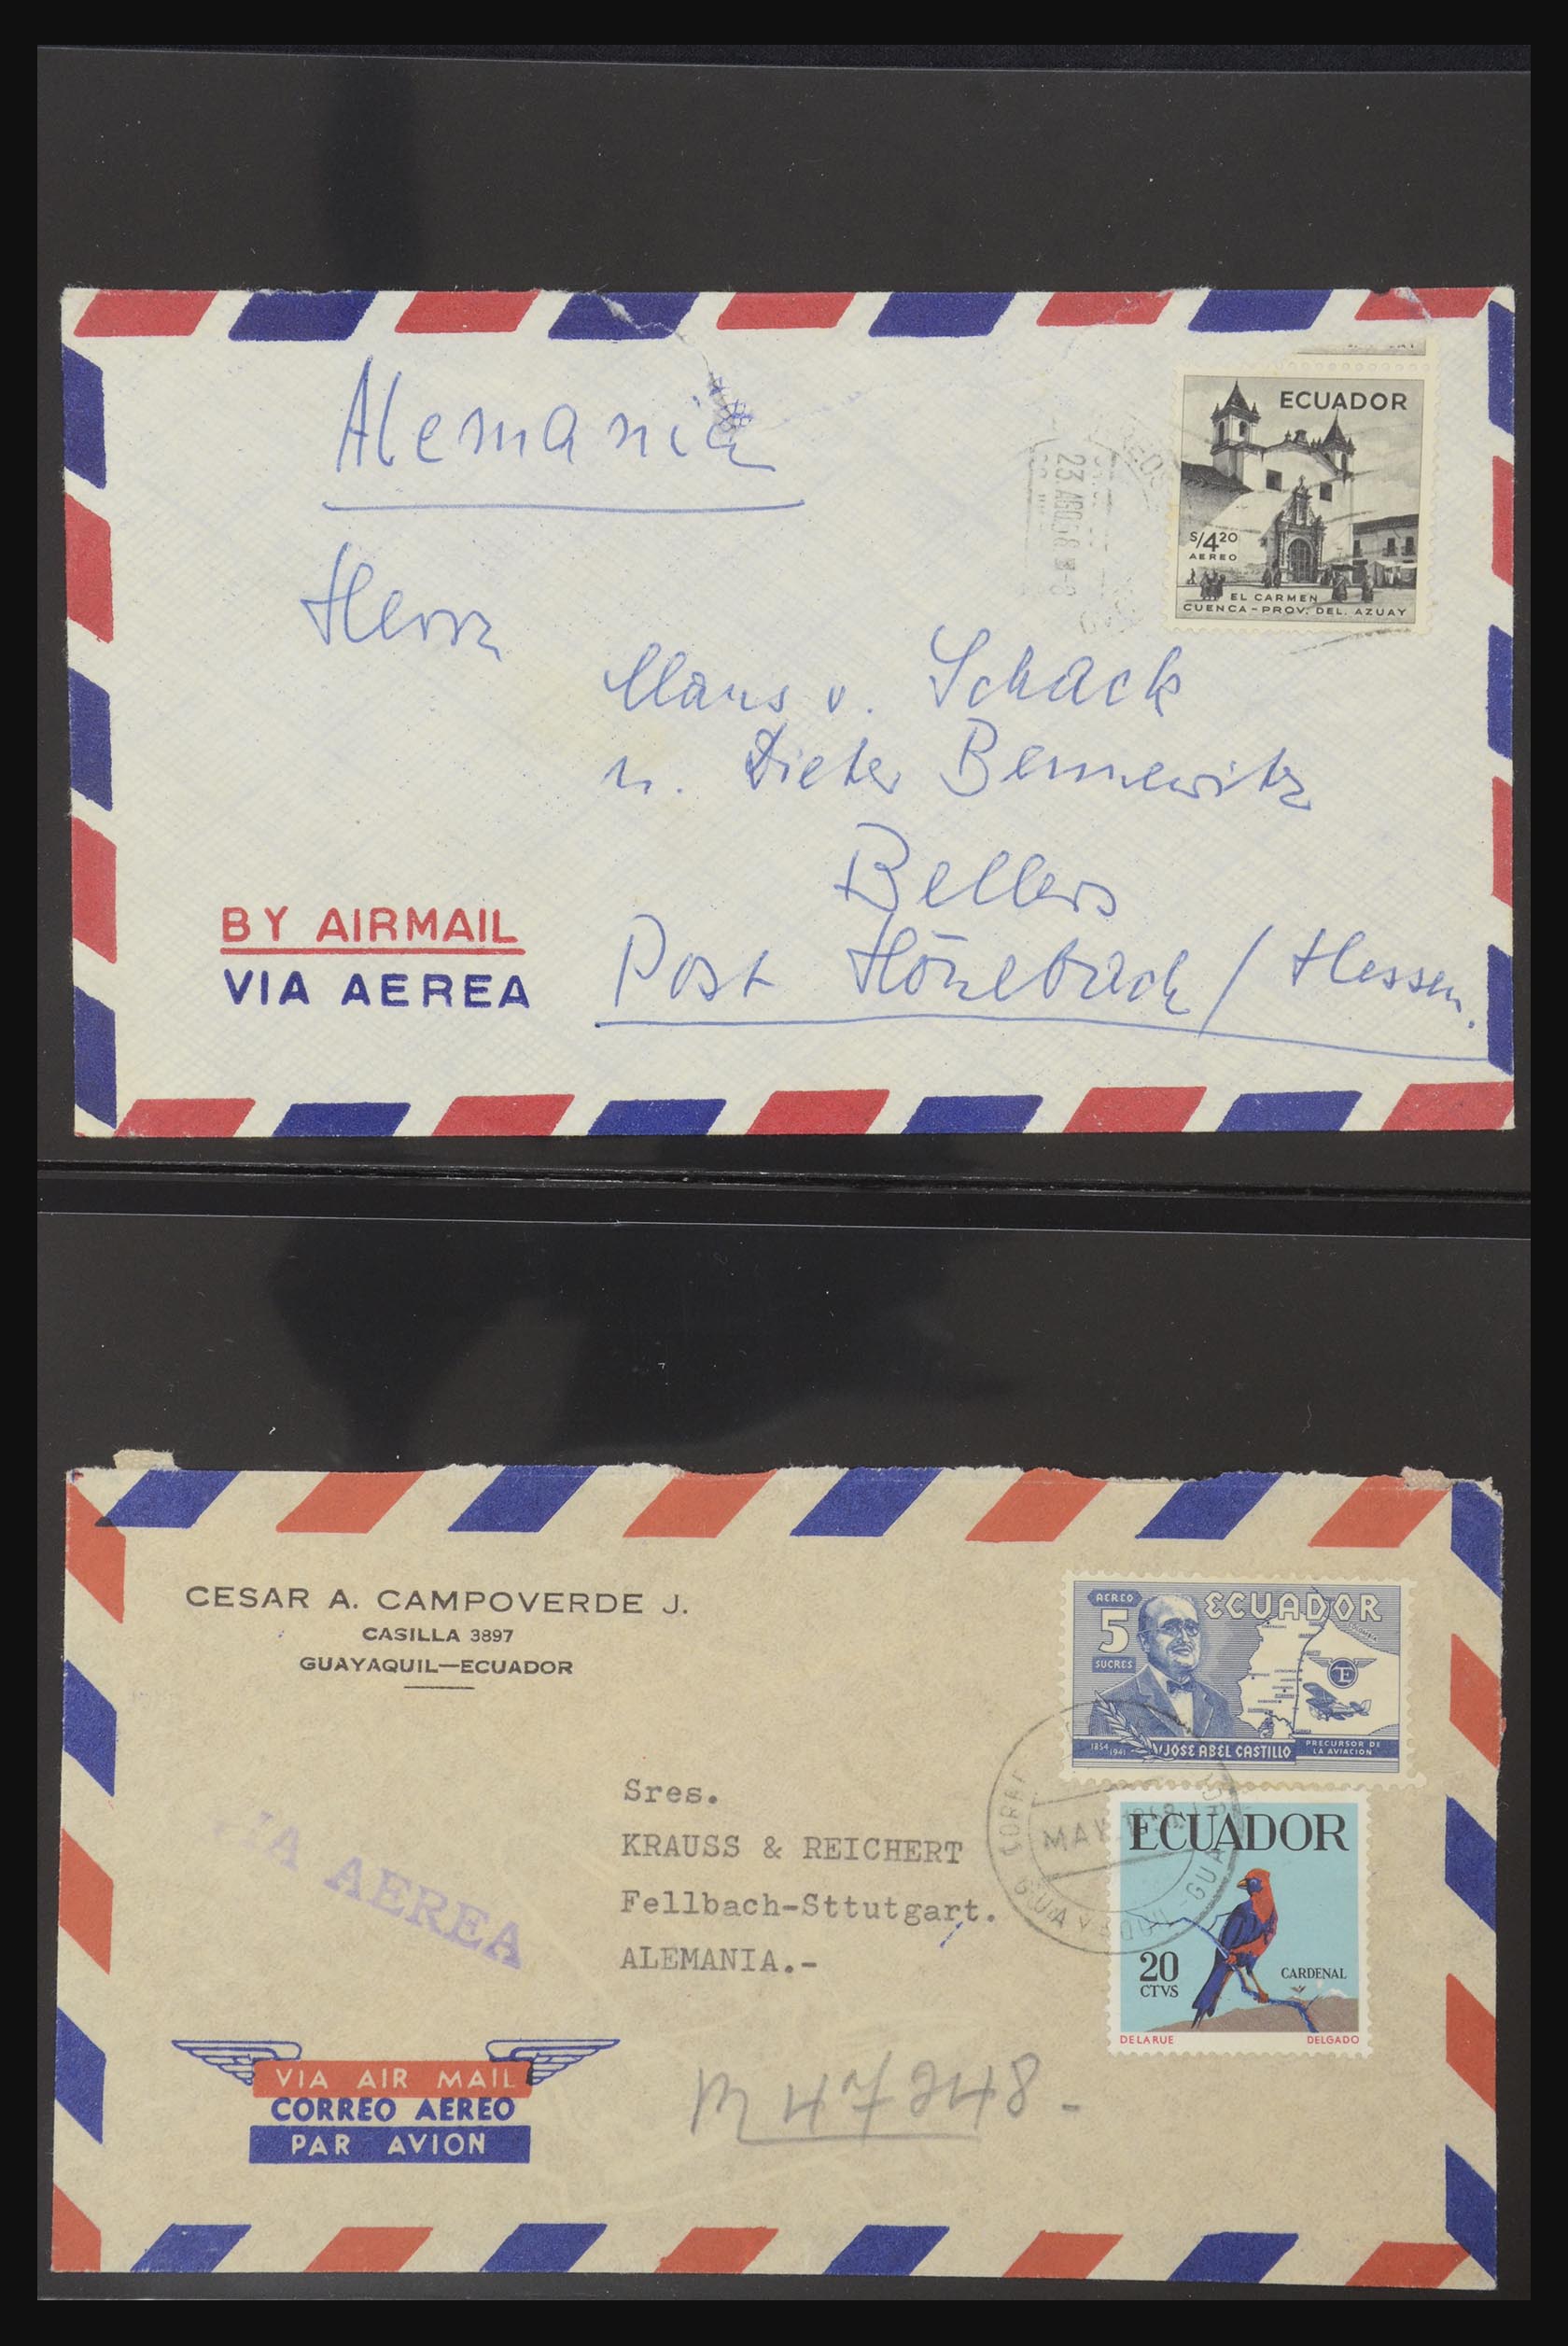 Alemania
Herrn
Klaus v. Schack
u. Dieter Bennewitz
Bellers
Post Hönebach / Hessen.
BY AIRMAIL
VIA AEREA
23. AGO.
ECUADOR
S/4 20
AEREO
EL CARMEN
CUENCA-PROV. DEL. AZUAY
CESAR A. CAMPOVERDE J.
CASILLA 3897
GUAYAQUIL—ECUADOR
AEREO
5
SUCRES
ECUADOR
COLOMBIA
1854
1941
JOSE ABEL CASTILLO
PRECURSOR DE
LA AVIACION
MAY
GUAYAQUIL
ECUADOR
20
CTVS
CARDENAL
DE LA RUE
DELGADO
Sres.
KRAUSS & REICHERT
Fellbach-Sttutgart.
ALEMANIA.-
VIA AEREA
VIA AIR MAIL
CORREO AEREO
PAR AVION
47248-